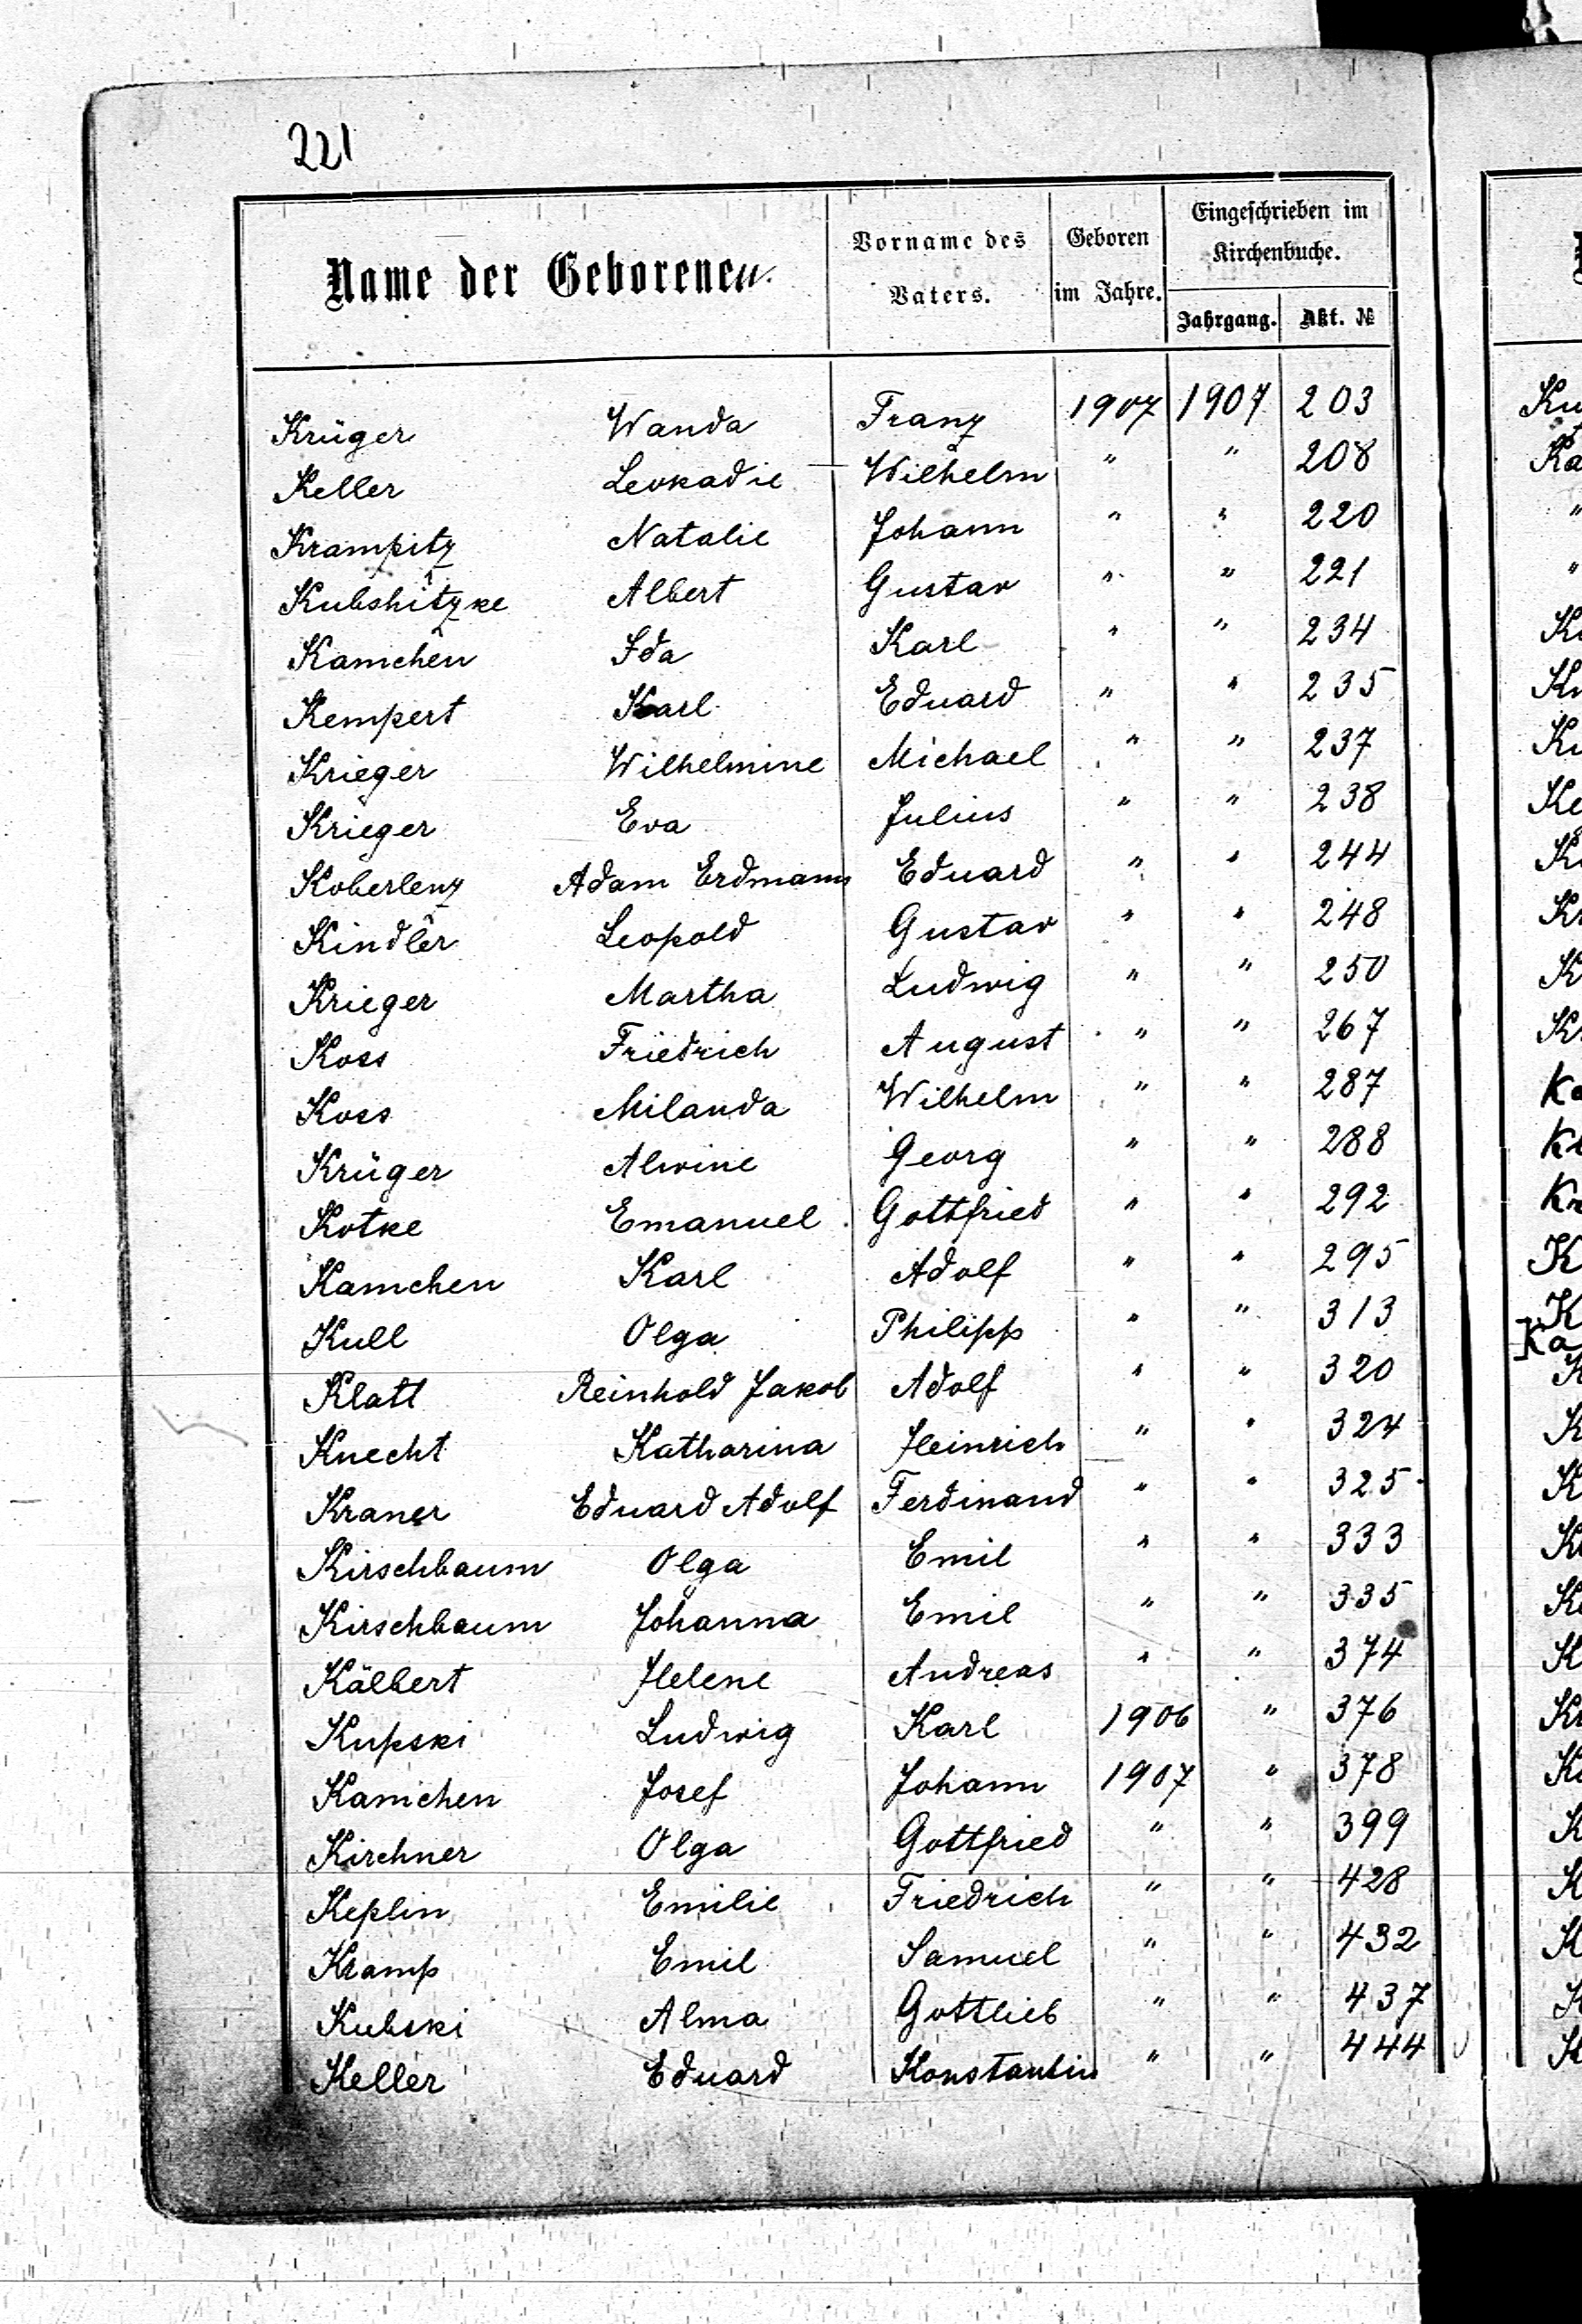 221
Name der Geborenen.
Vorname des Vaters.
Geboren im Jahre.
Eingeschrieben im Kirchenbuche.
Jahrgang. Akt. №
Krüger Wanda Franz 1907 1907 203
Keller Leokadie Wilhelm " " 208
Krampitz Natalie Johann " " 220
Kubshitzke Albert Gustav " " 221
Kamchen Ida Karl " " 234
Kempert Karl Eduard " " 235
Krieger Wilhelmine Michael " " 237
Krieger Eva Julius " " 238
Koberlenz Adam Erdmann Eduard " " 244
Kindler Leopold Gustav " " 248
Krieger Martha Ludwig " " 250
Koss Friedrich August " " 267
Koss Milanda Wilhelm " " 287
Krüger Alwine Georg " " 288
Kotke Emanuel Gottfried " " 292
Kamchen Karl Adolf " " 295
Kull Olga Philipp " " 313
Klatt Reinhold Jakob Adolf " " 320
Knecht Katharina Heinrich " " 324
Kraner Eduard Adolf Ferdinand " " 325
Kirschbaum Olga Emil " " 333
Kirschbaum Johanna Emil " " 335
Kälbert Helene Andreas " " 374
Kupski Ludwig Karl 1906 " 376
Kamchen Josef Johann 1907 " 378
Kirchner Olga Gottfried " " 399
Keplin Emilie Friedrich " " 428
Kramp Emil Samuel " " 432
Kubski Alma Gottlieb " " 437
Keller Eduard Konstantin " " 444